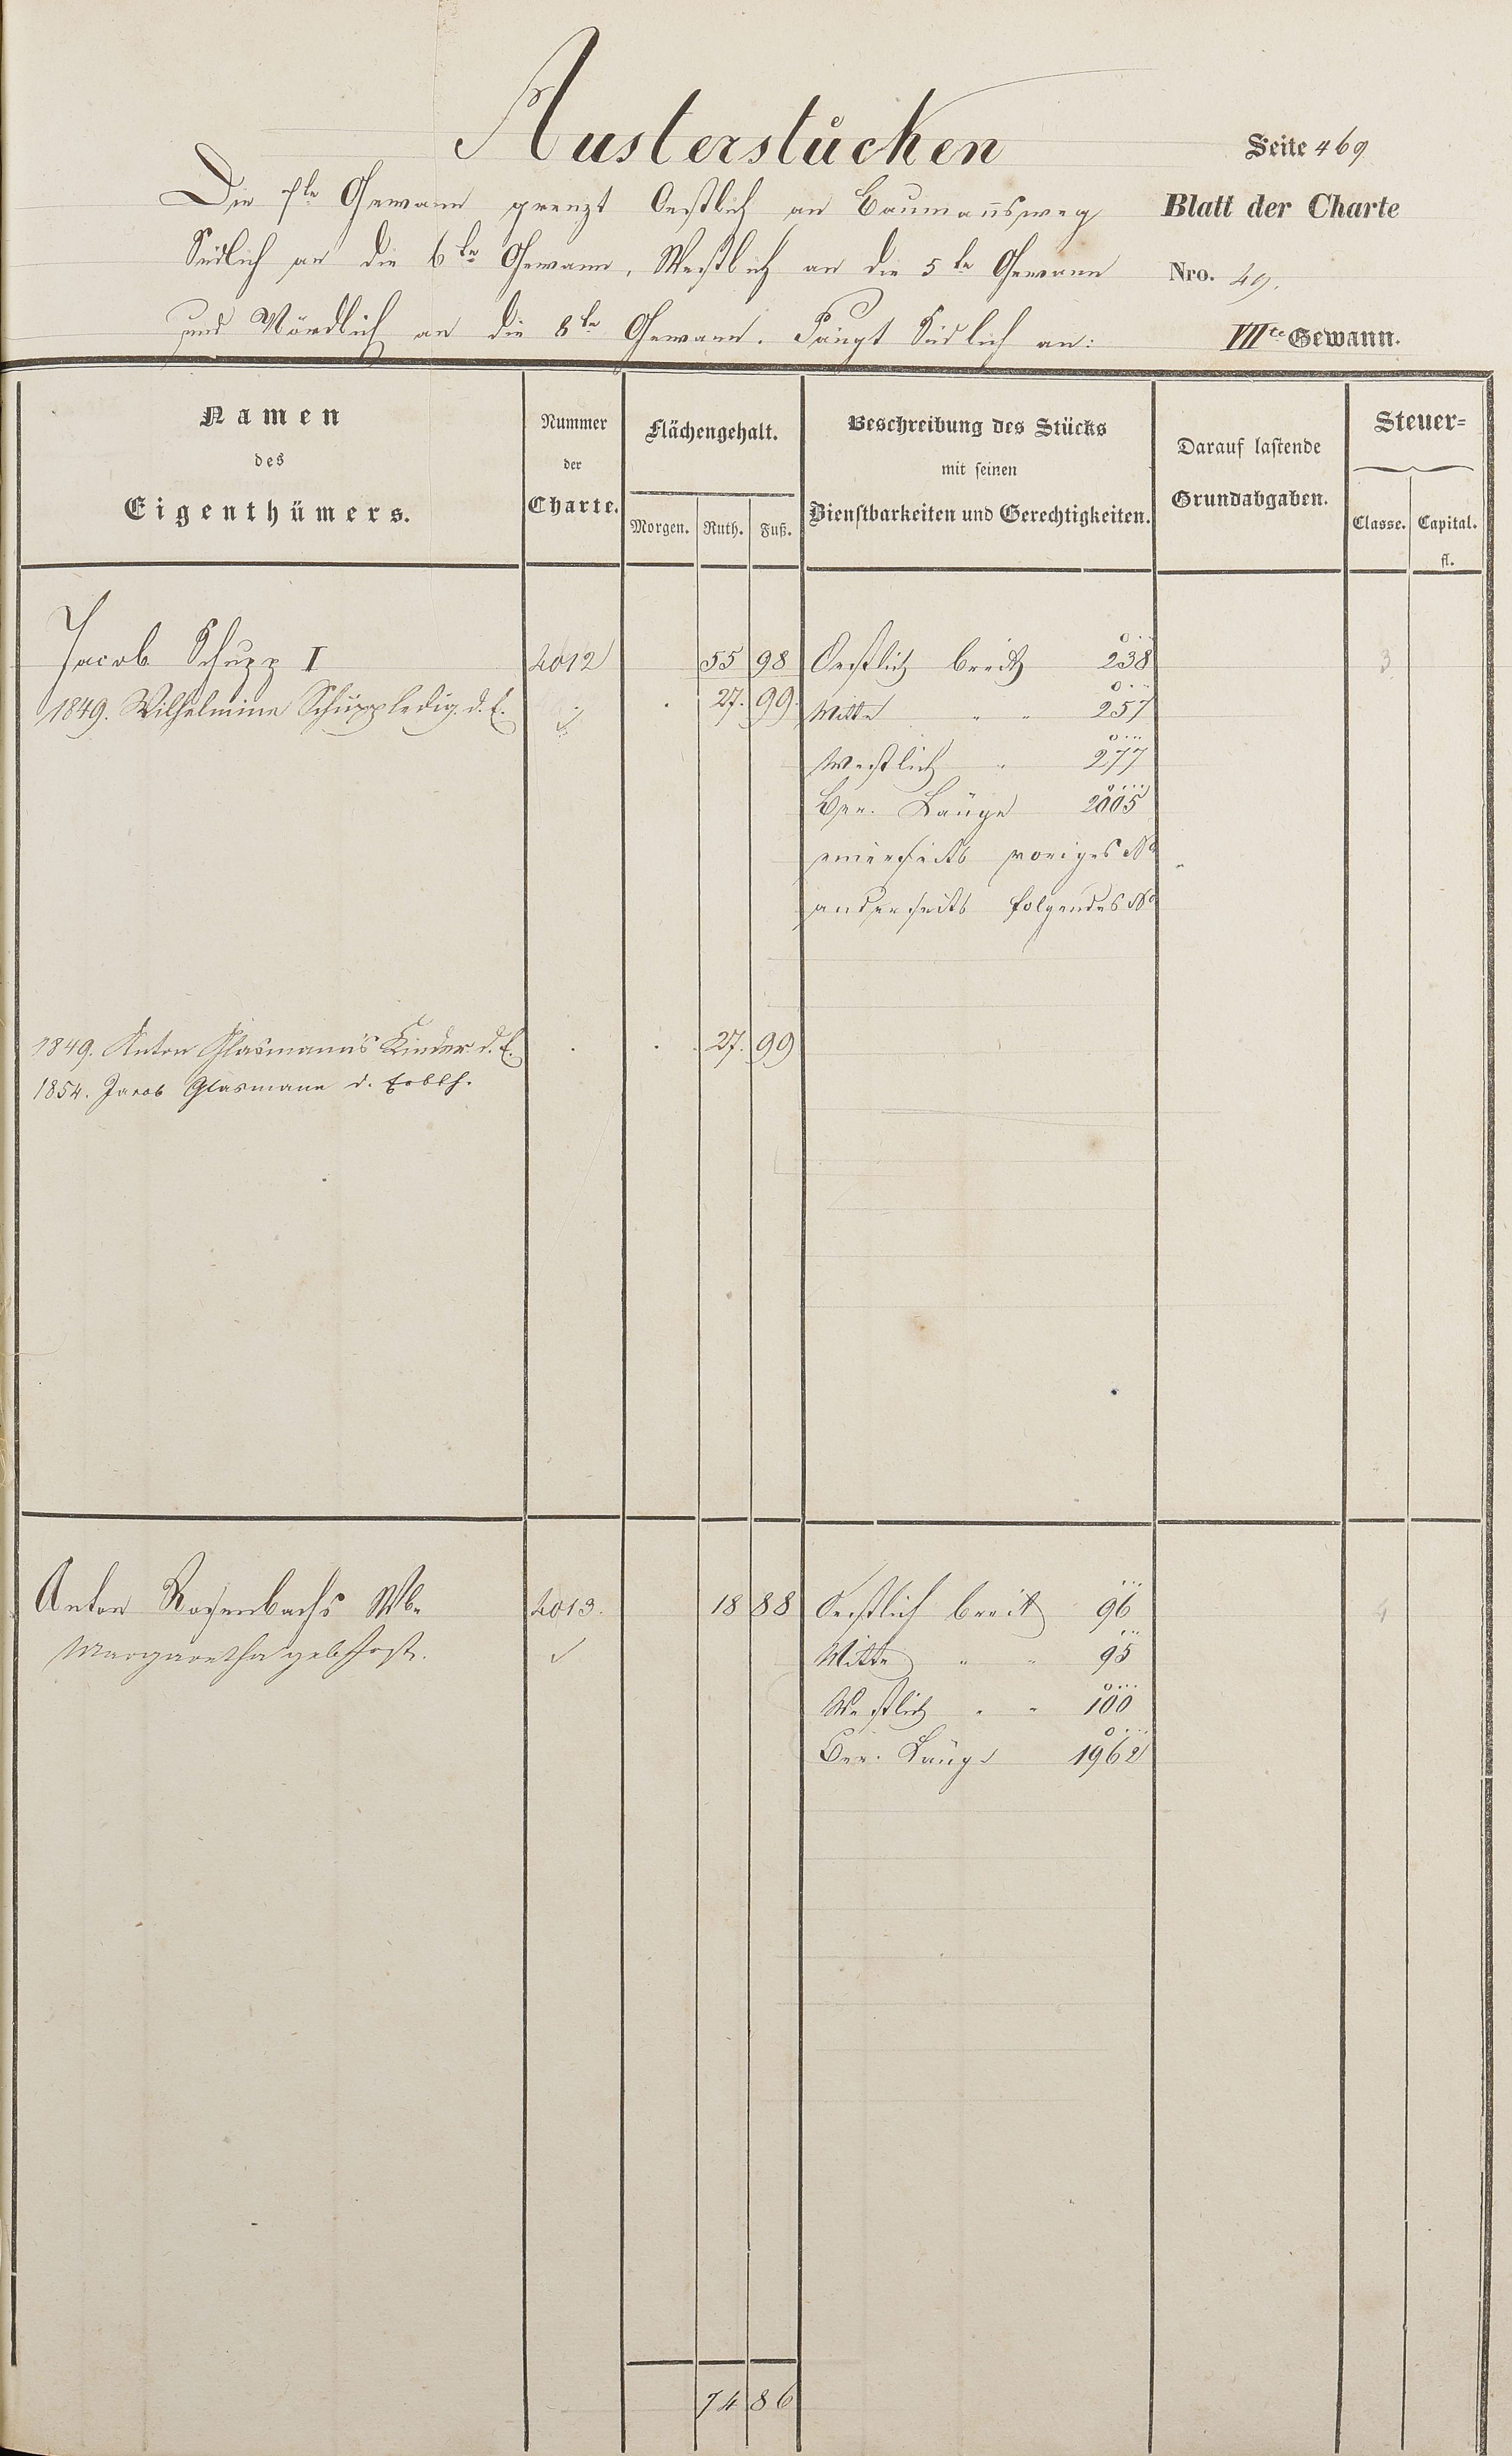 Austerstücken
Seite 469
Die 7te Gewann grenzt Oestlich an Baumannsweg
Blatt der Charte
Südlich an die 6te Gewann, Westlich an die 5te Gewann
Nro. 49.
und Nördlich an die 8te Gewann. Fängt Südlich an:
VIIte Gewann.
Namen
des
Eigenthümers.
Nummer
der
Charte.
Flächengehalt.
Morgen. Ruth. Fuß.
Beschreibung des Stücks
mit seinen
Dienstbarkeiten und Gerechtigkeiten.
Darauf lastende
Grundabgaben.
Steuer=
Classe. Capital.
fl.
Jacob Schupp I 2012 55 98 Oestlich breit 238 3
1849. Wilhelmine Schupp ledig. d. E. 27. 99. Mitte " " 257
Westlich " 277
Ber. Länge 2005
einerseits voriges No
anderseits folgendes No
1849. Anton Glasmann's Kinder d. E. 27. 99
1854. Jacob Glasmann d. Erbth.
Anton Rosenbachs Wbe 2013. 18 88 Oestlich breit 96 4
Margaretha geb. Jost. Mitte " " 95
Westlich " " 100
Ber. Länge 1962
74 86